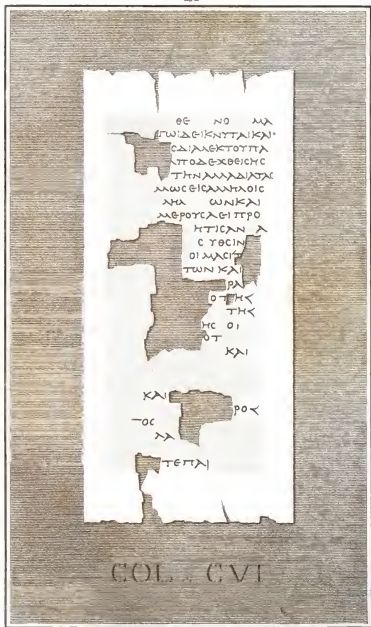 ΘΕ ΝΟ ΜΑ
ΠΩΙΔΕΙΚΝΥΤΑΙΚΑΙ
ϹΔΙΑΛΕΚΤΟΥΠΑ
ΑΠΟΔΕΧΘΕΙϹΗϹ
ΤΗΝΑΜΑΔΙΑΤΑϹ
ΜΩϹΕΙϹΑΛΛΗΛΟΙϹ
ΛΗΛ ΩΝΚΑΙ
ΜΕΡΟΥϹΑΕΙΠΡΟ
ΗΤΙϹΑΝ Α
Ϲ ΥΘΕΙΝ
ΟΙΜΑϹΙΤ
ΤΩΝ ΚΑΙ
ΡΑ
ΟΤΗϹ
ΤΗϹ
ΗϹ ΟΙ
ΟΤ
ΚΑΙ
ΚΑΙ
ΡΟϹ
ΤΟϹ
ΛΑ
ΤΕΠΑΙ
COL. CVI